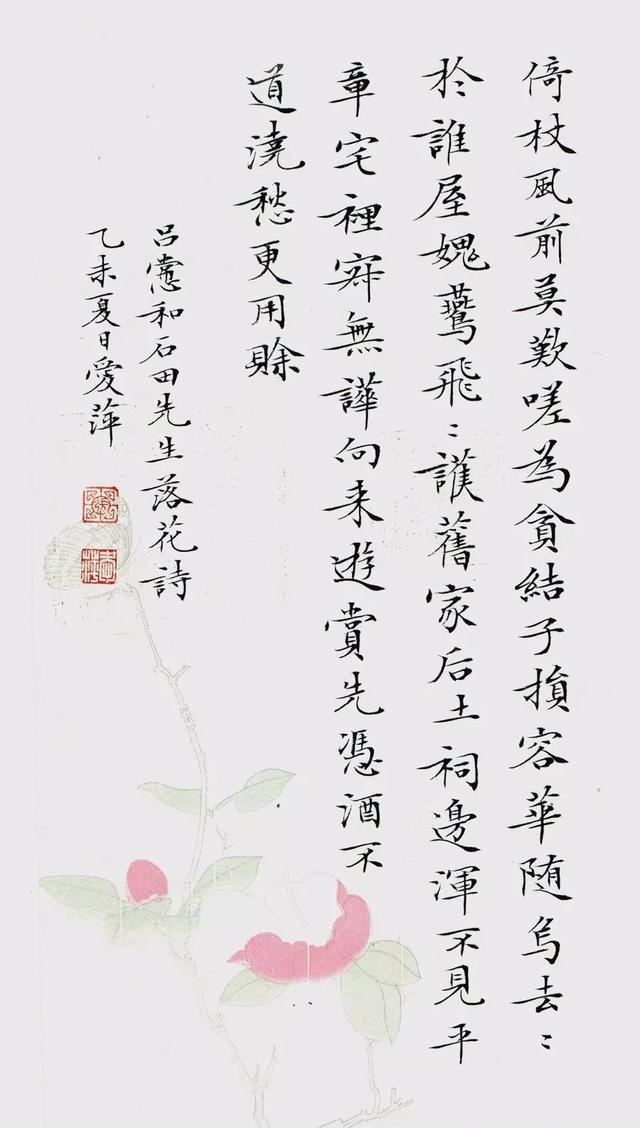 倚杖風前莫歎嗟為貪結子損容華随烏去〻
於誰屋媿鷰飛〻護舊家后土祠邊渾不見平
章宅裡寂無譁向来遊賞先憑酒不
道澆愁更用賒
吕㦂和石田先生落花詩
乙未夏日愛萍